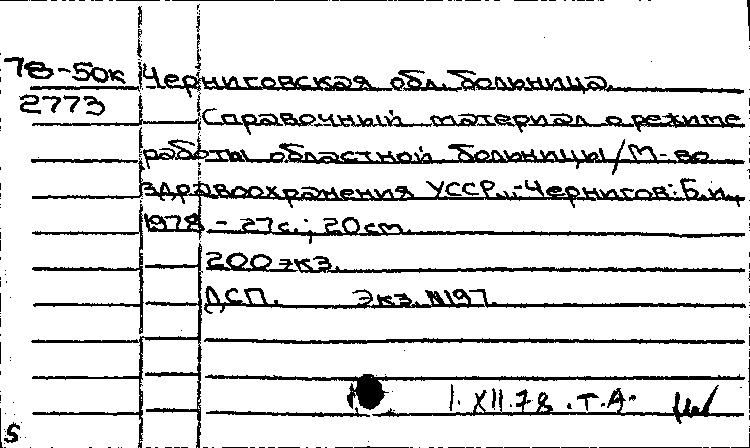 78-50к Черниговская обл. больница.
2773
Справочный материал о режиме
работы областной больницы/М-во
здравоохранения УССР...-Чернигов: Б.и.,
1978 - 27с.; 20см.
200 экз.
ДСП. Экз. №197.
1. XII.78. Т.А.
5